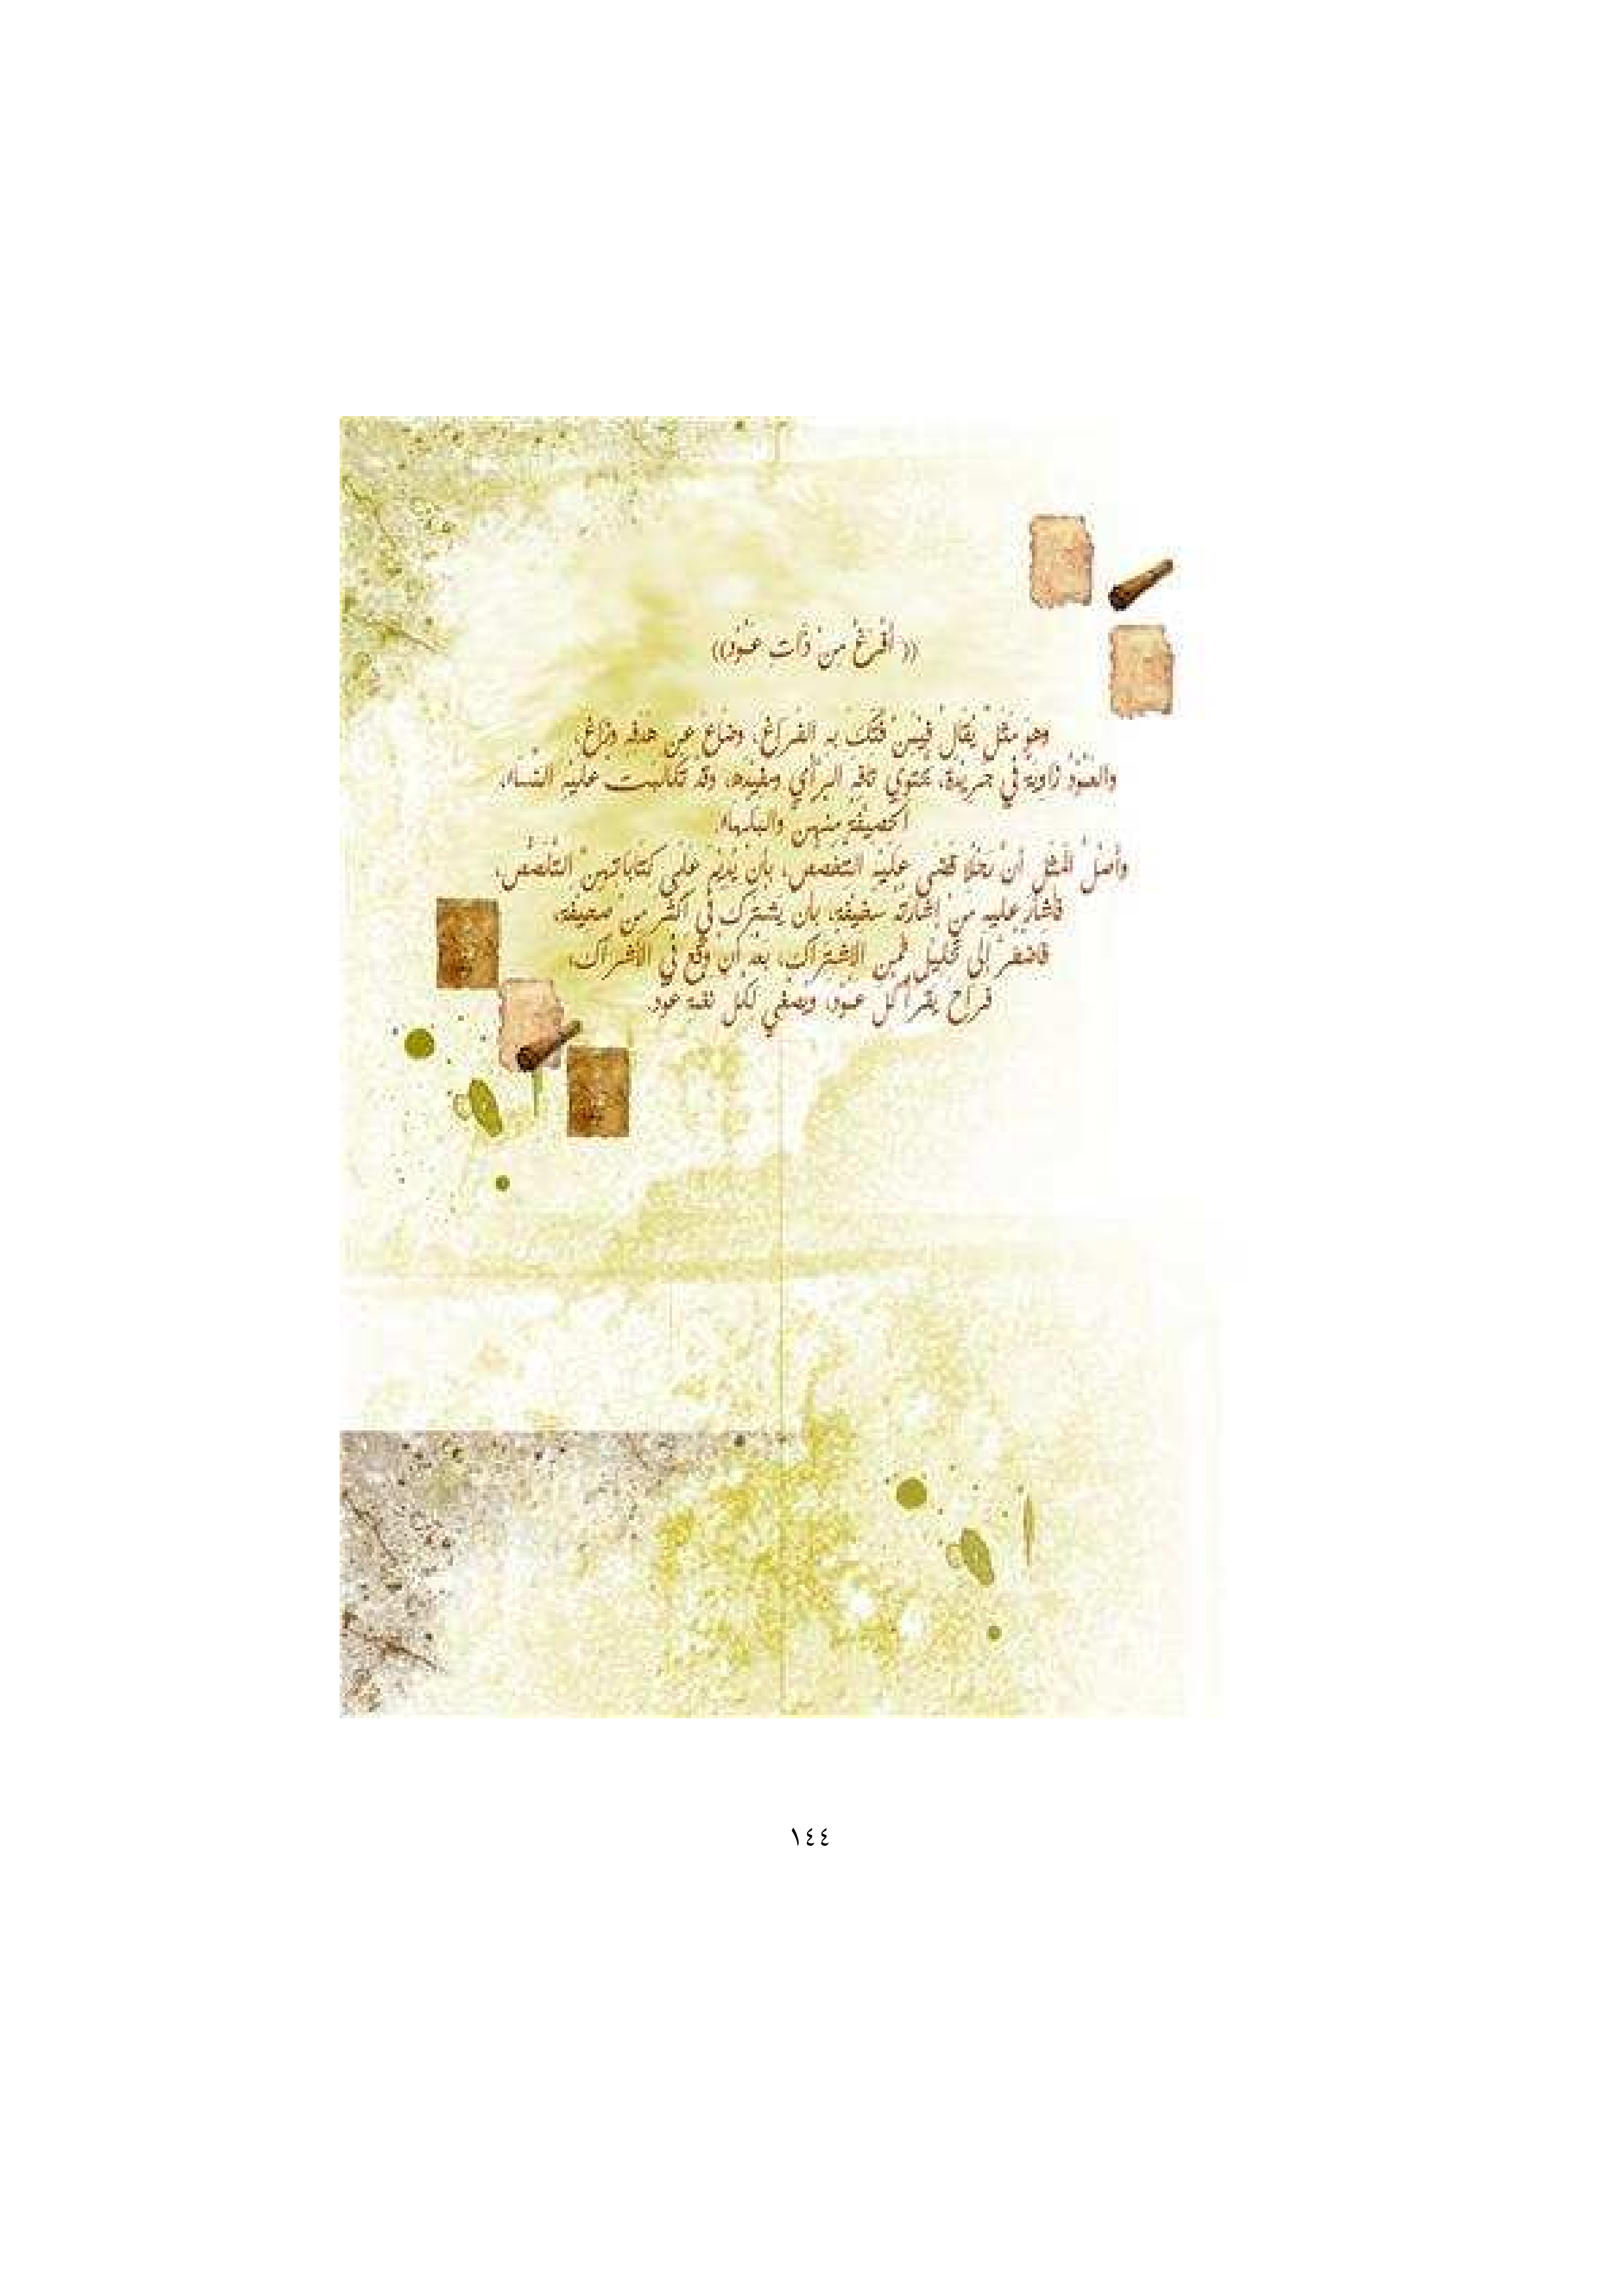 ((أَفْرَغُ مِنْ ذَاتِ عَمُود))
وهو مَثَلٌ يُقَالُ فِيمَنْ فَتَكَ بهِ الفراغ، وضاعَ عن هدفه وزاغ،
والعَمُودُ زاوية في جريدة، يحتوي تافِه الرأي ومفيده، وقد تكالبت عليهِ النساء،
الحصيفة منهن والبلهاء.
وأصْلُ المثل أنّ رجُلاً قضي عليه التقصص، بأن يُديم على كتاباتهن التلصّص،
فأشار عليه من إشارتُه سخيفة، بأن يشترك في أكثر من صحيفة،
فاضطر إلى تحليل ثمن الاشتراك، بعد أن وقع في الأشراك،
فراح يقرأ كل عمود، ويصغي لكل نغمة عود.
١٤٤